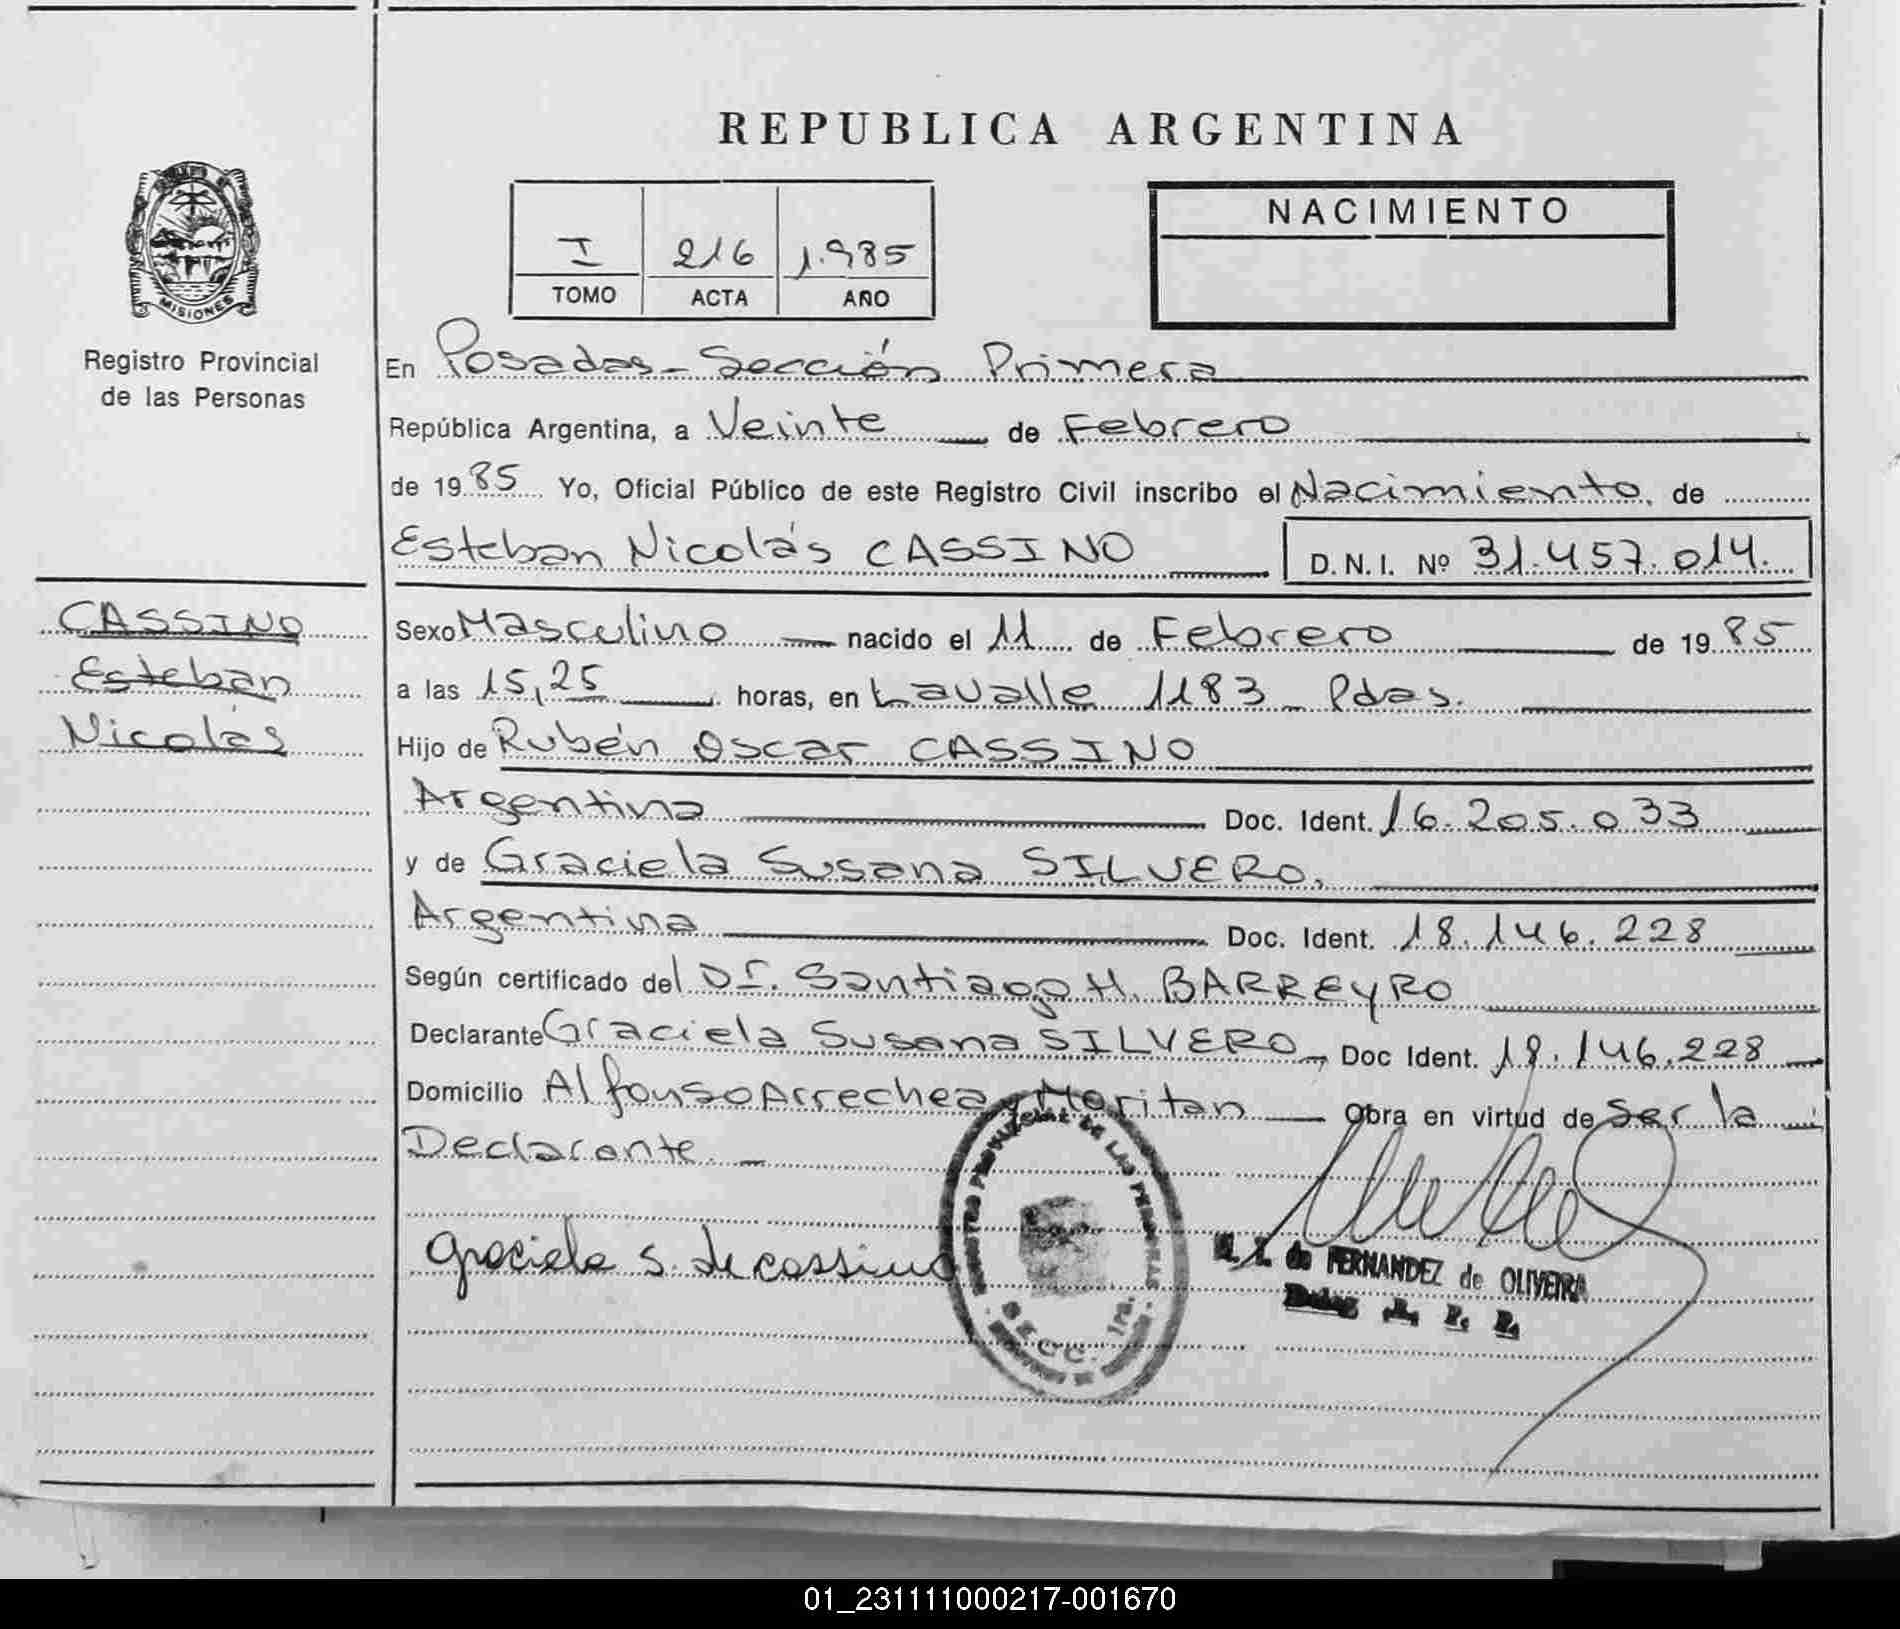 REPUBLICA ARGENTINA
MISIONES
Registro Provincial
de las Personas
I 216 1.985
TOMO ACTA AÑO
NACIMIENTO
En Posadas - Sección Primera
República Argentina, a Veinte de Febrero
de 1985 Yo, Oficial Público de este Registro Civil inscribo el Nacimiento, de
Esteban Nicolás CASSINO D. N. I. Nº 31.457.014.
CASSINO
Esteban
Nicolás
Sexo Masculino nacido el 11 de Febrero de 1985
a las 15,25 horas, en Lavalle 1183 - Pdas.
Hijo de Rubén Oscar CASSINO
Argentina Doc. Ident. 16.205.033
y de Graciela Susana SILVERO,
Argentina Doc. Ident. 18.146.228
Según certificado del Dr. Santiago H. BARREYRO
Declarante Graciela Susana SILVERO, Doc Ident. 18.146.228
Domicilio Alfonso Arrechea y Moritan Obra en virtud de Ser la
Declarante. -
Graciela S. de Cassino
DE LAS PERSONAS
SECC. 1ra.
de FERNANDEZ de OLIVEIRA
01_231111000217-001670